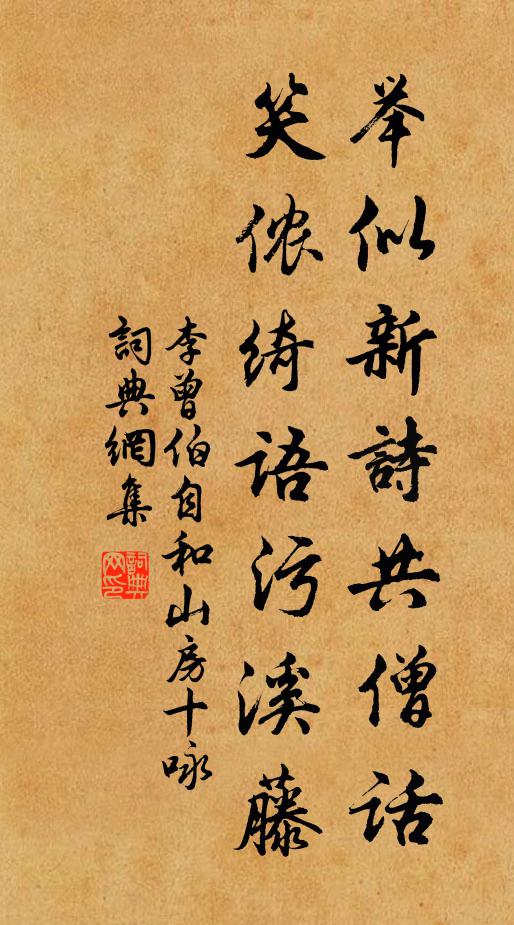 举似新詩共僧话
笑侬绮语污溪藤
李曾伯自和山房十咏
詞典網集
詞典
网印